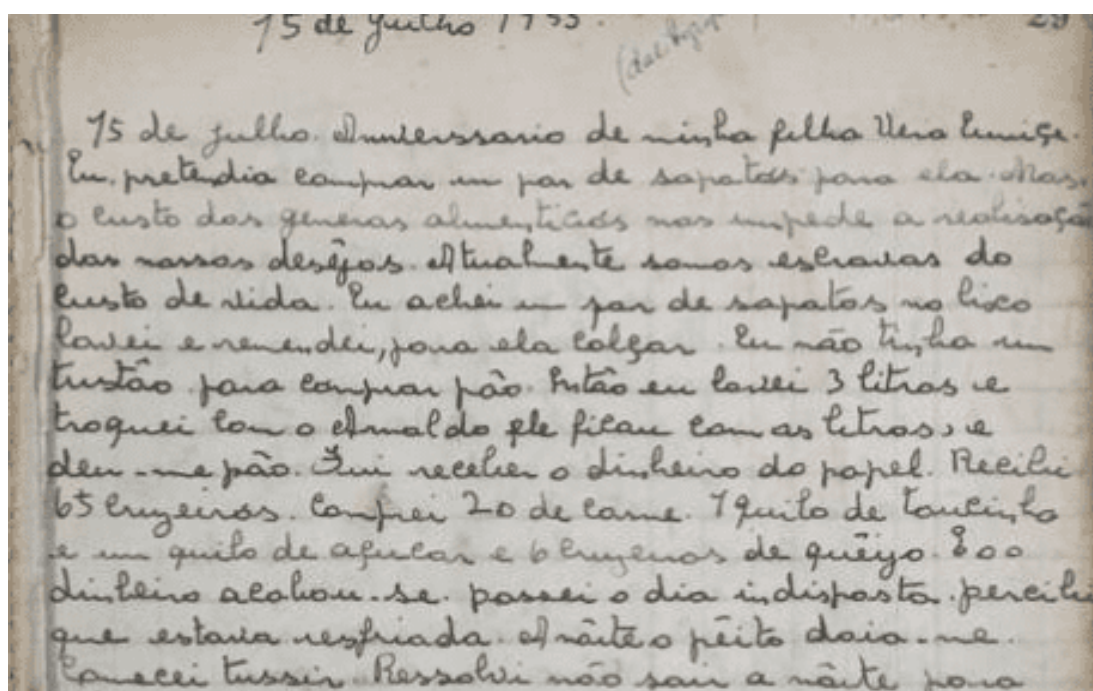 15 de Julho 1955. 29
15 de julho. Anniverssario de minha filha Vera Euniçe.
Eu pretendia comprar um par de sapatos para ela. Mas,
o custo dos generos alimenticios nos impede a realisação
dos nossos desêjos. Atualmente somos escravos do
custo de vida. Eu achei um par de sapatos no lixo
lavei e remendei, para ela calçar. Eu não tinha um
tustão para comprar pão. Então eu lavei 3 litros e
troquei com o Arnaldo ele ficou com os litros, e
deu-me pão. Fui receber o dinheiro do papel. Recibi
65 cruzeiros. Comprei 20 de carne. 1 quilo de toucinho
e um quilo de açucar e 6 cruzeiros de quêijo. E o o
dinheiro acabou-se. passei o dia indisposta. percibi
que estava resfriada. A nôite o pêito doia-me.
Comecei tussir. Ressolvi não sair a nôite para